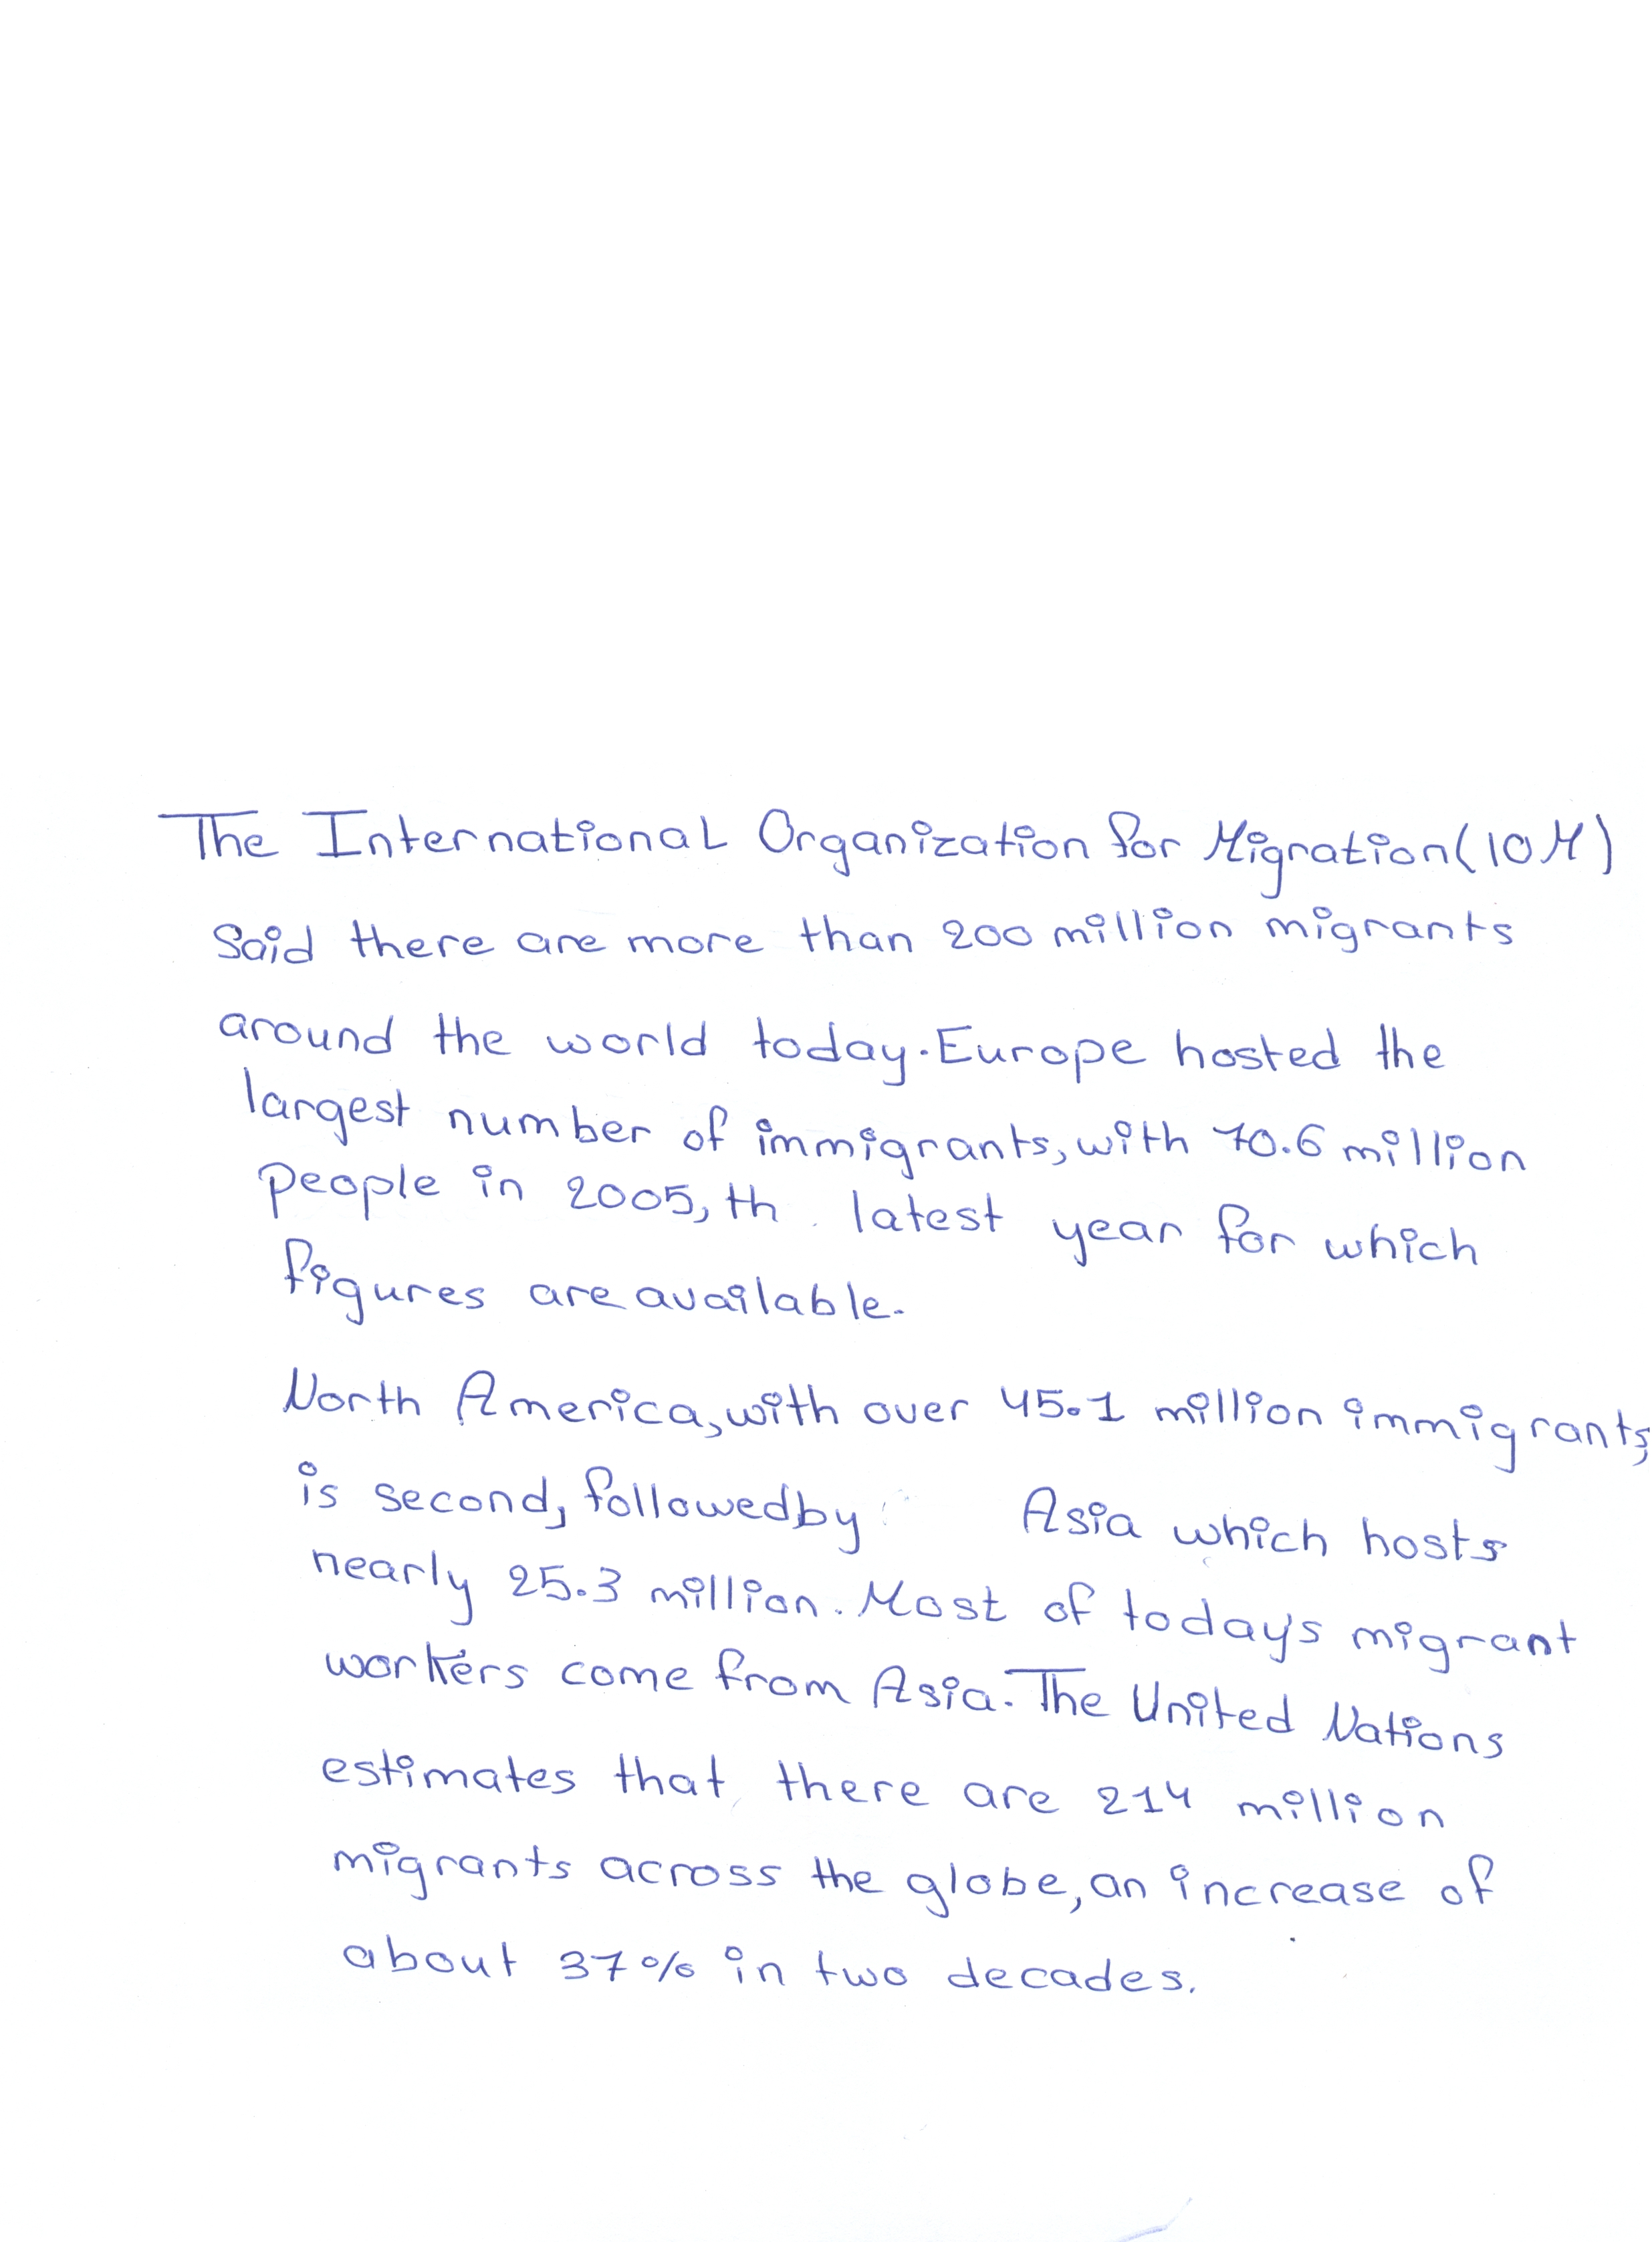 The International Organization for Migration(IOM)
Said there are more than 200 million migrants
around the world today.Europe hosted the
largest number of immigrants,with 70.6 million
people in 2005,th latest year for which
figures are available.
North America,with over 45.1 million immigrants,
is second, followedby Asia which hosts
nearly 25.3 million.Most of today's migrant
workers come from Asia.The United Nations
estimates that there are 214 million
migrants across the globe,an increase of
about 37% in two decades.